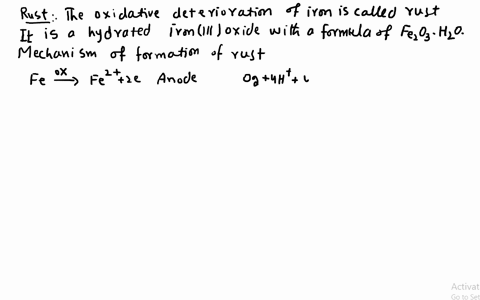 Rust:- The oxidative deterioration of iron is called rust
It is a hydrated iron(III) oxide with a formula of Fe₂O₃·H₂O.
Mechanism of formation of rust
Fe —ox→ Fe²⁺+2e Anode O₂+4H⁺+
Activat
Go to Set